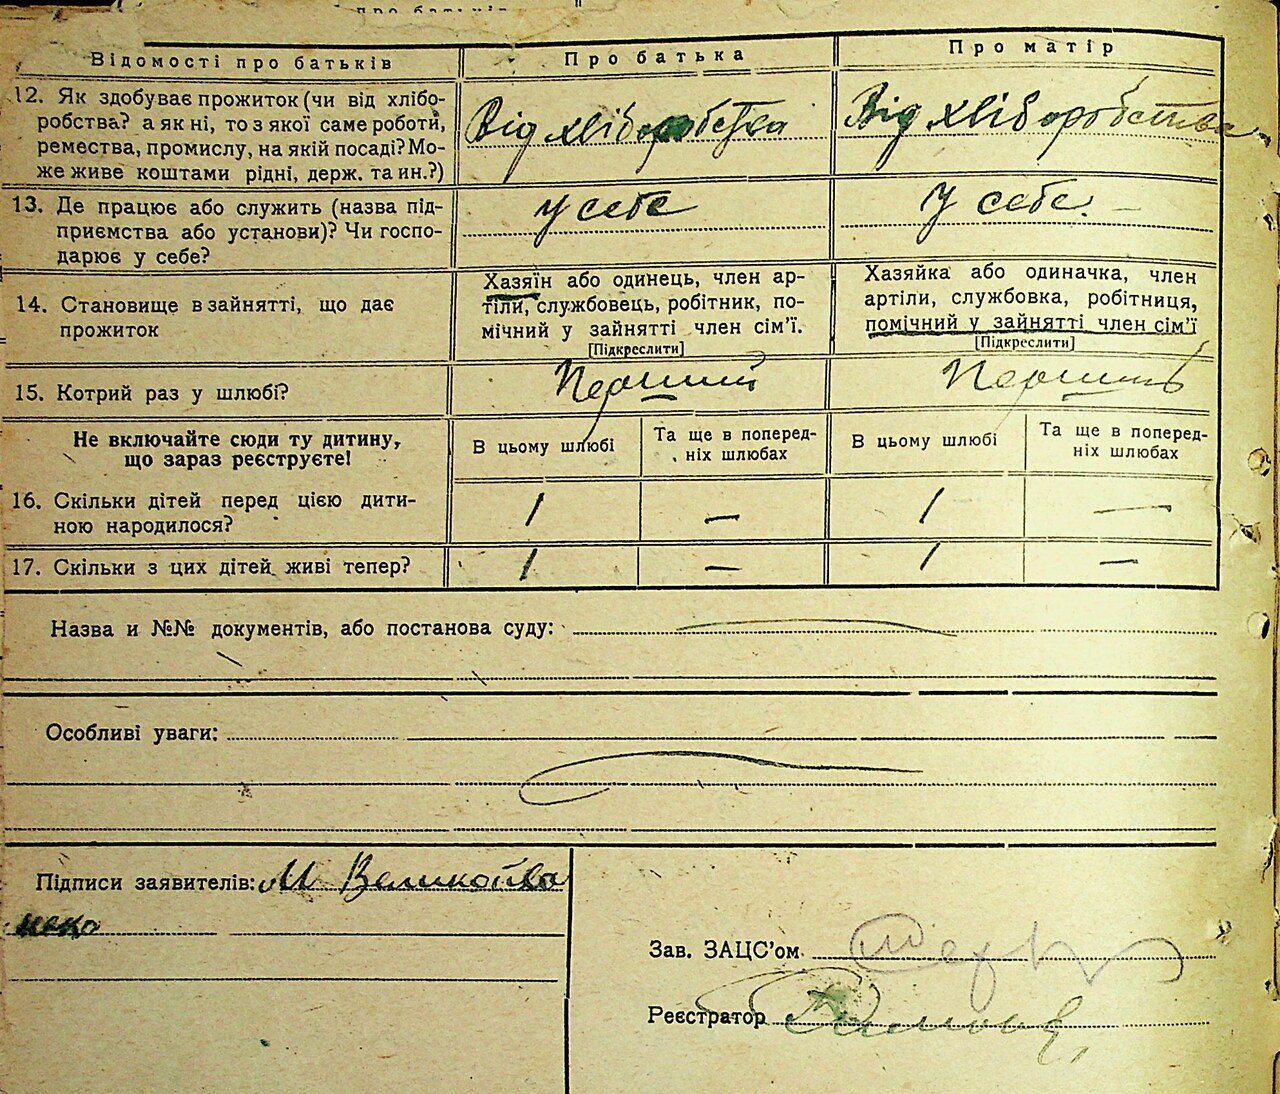 про батьків
Відомості про батьків
Про батька
Про матір
12. Як здобуває прожиток (чи від хлібо-
робства? а як ні, то з якої саме роботи,
ремества, промислу, на якій посаді? Мо-
же живе коштами рідні, держ. та ин.?)
Від хліборобства
Від хліборобства
13. Де працює або служить (назва під-
приємства або установи)? Чи госпо-
дарює у себе?
у себе
У себе.
14. Становище в зайнятті, що дає
прожиток
Хазяїн або одинець, член ар-
тіли, службовець, робітник, по-
мічний у зайнятті член сім’ї.
[Підкреслити]
Хазяйка або одиначка, член
артіли, службовка, робітниця,
помічний у зайнятті член сім’ї
[Підкреслити]
15. Котрий раз у шлюбі?
Перший
Перший
Не включайте сюди ту дитину,
що зараз реєструєте!
В цьому шлюбі
Та ще в поперед-
ніх шлюбах
В цьому шлюбі
Та ще в поперед-
ніх шлюбах
16. Скільки дітей перед цією дити-
ною народилося?
1 — 1 —
17. Скільки з цих дітей живі тепер?
1 — 1 —
Назва и №№ документів, або постанова суду:
Особливі уваги:
Підписи заявителів: М
Зав. ЗАЦС’ом
Реєстратор